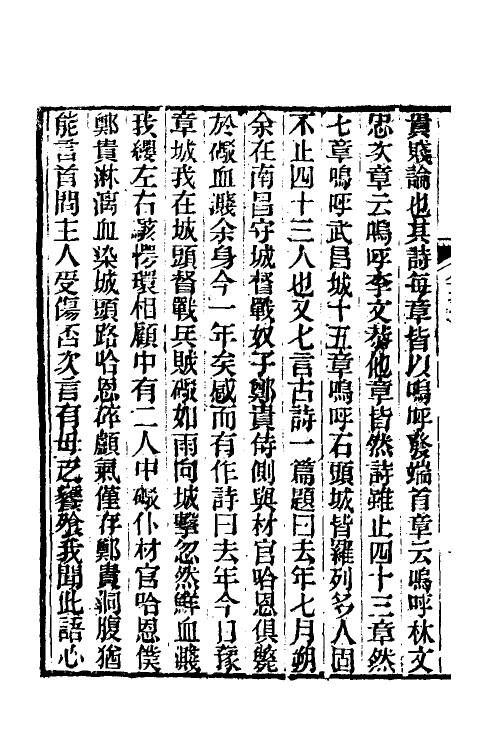 貴賤論也其詩每章皆以嗚呼發端首章云嗚呼林文
忠次章云嗚呼李文恭他章皆然詩雖止四十三章然
七章嗚呼武昌城十五章嗚呼石頭城皆羅列多人固
不止四十三人也又七言古詩一篇題曰去年七月朔
余在南昌守城督戰奴子鄭貴侍側與材官哈恩俱斃
於礮血濺余身今一年矣感而有作詩曰去年今日豫
章城我在城頭督戰兵賊礮如雨向城擊忽然鮮血濺
我纓左右駭愕環相顧中有二人中礮仆材官哈恩僕
鄭貴淋漓血染城頭路哈恩碎顱氣僅存鄭貴洞腹猶
能言首問主人受傷否次言有母乏饔飱我聞此語心